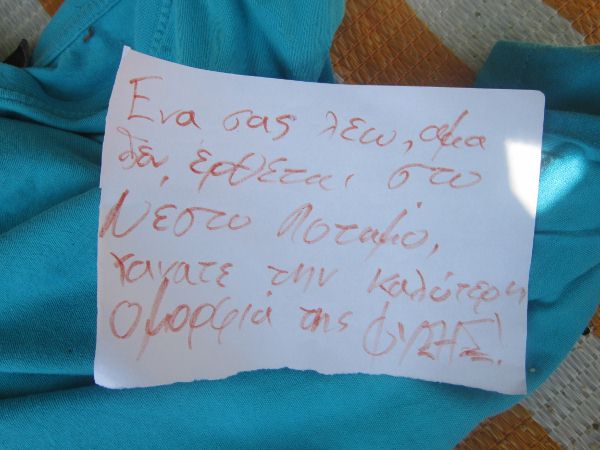 Ενα σας λέω, αμα
δεν έρθεται στο
Νέστο Ποταμό,
χανατε την καλύτερη
Ομορφιά της ΦΥΣΗΣ!